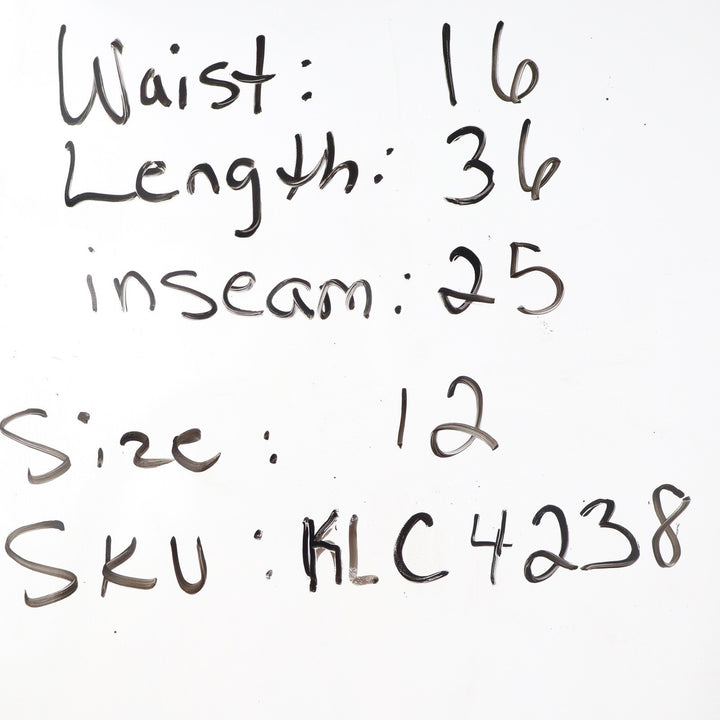 Waist: 16
Length: 36
inseam: 25
Size: 12
SKU: KLC4238